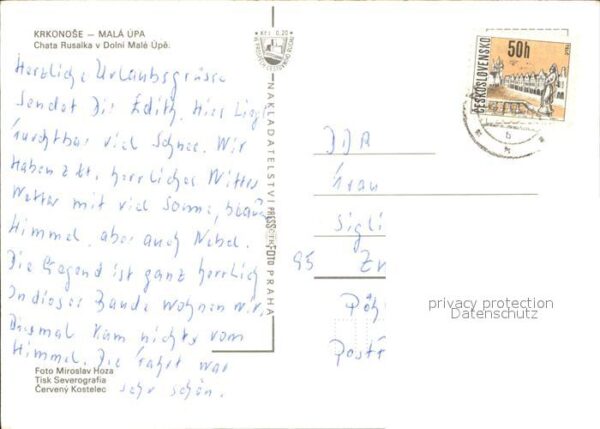 KRKONOŠE — MALÁ ÚPA
Chata Rusalka v Dolní Malé Úpě.
Herzliche Urlaubsgrüsse
Sendet Dir Edith. Hier liegt
furchtbar viel Schnee. Wir
Haben z.Zt. herrliches Winter
Wetter mit viel Sonne, blauem
Himmel, aber auch Nebel.
Die Gegend ist ganz herrlich
In dieser Baude wohnen wir,
Diesmal kam nichts vom
Himmel. Die Fahrt war
sehr schön.
Foto Miroslav Hoza
Tisk Severografia
Červený Kostelec
NAKLADATELSTVÍ PRESSFOTO PRAHA
Kčs 0,20
ČESKOSLOVENSKO
50h
DDR
Frau
Sigli
95 Zw
Pöh
Postf
privacy protection
Datenschutz